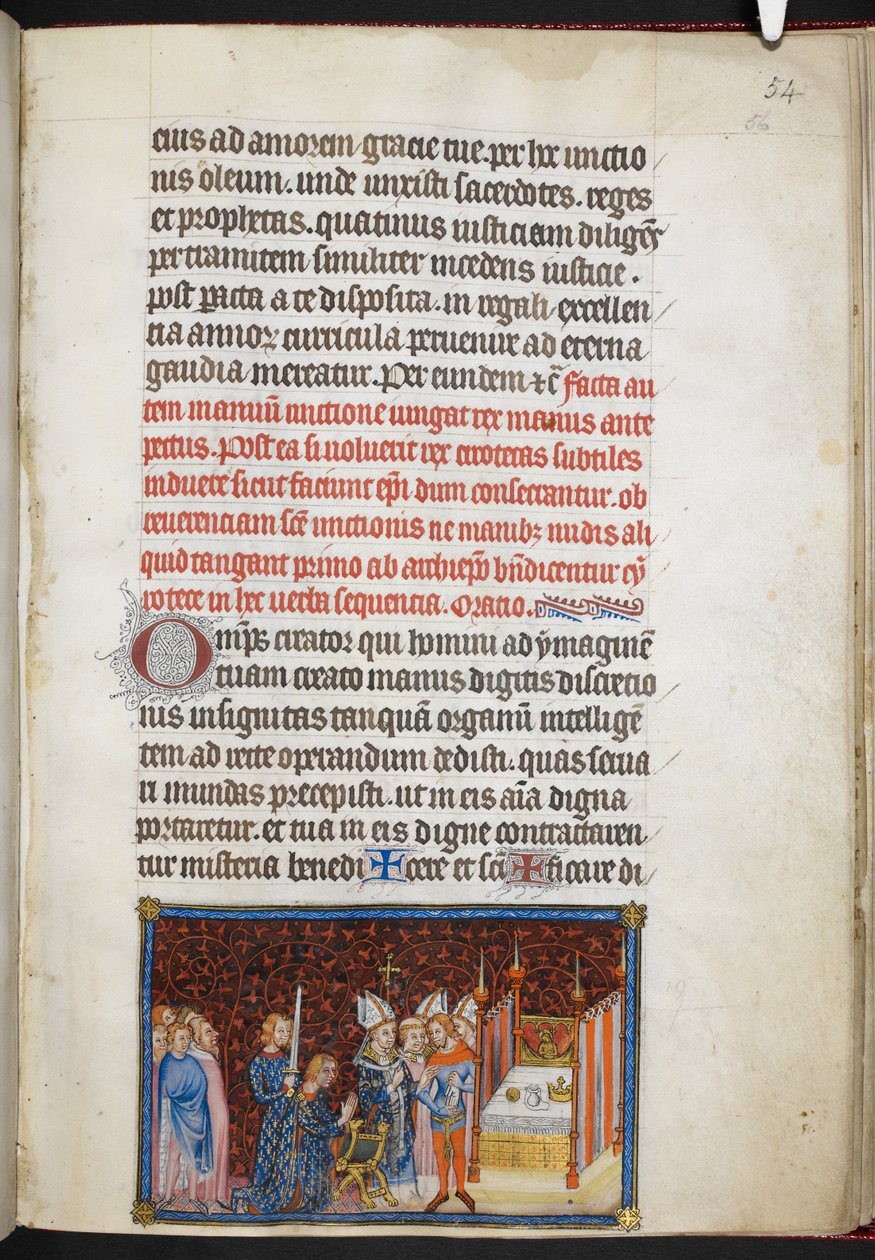 54
56
eius ad amorem gracie tue. per hoc unctio
nis oleum. unde unxisti sacerdotes. reges
et prophetas. quatinus iusticiam diligēs
per tramitem similiter incedens iusticie.
post pacta a te disposita. in regali excellen
tia annoꝝ curricula peruenire ad eterna
gaudia mereatur. Per eundem ⁊c̄ Facta au
tem manuū unctione iungat rex manus ante
pectus. Post ea si uoluerit rex cirotecas subtiles
induere sicut faciunt ep̄i dum consecrantur. ob
reuerenciam sc̄e unctionis ne manibꝫ nudis ali
quid tangant primo ab archiep̄o bn̄dicentur cy
rotece in hec uerba sequencia. Oratio.
Omp̄s creator qui homini ad ymaginē
tuam creato manus digitis discrecio
nis insignitas tanquā organū intelligē
tem ad recte operandum dedisti. quas serua
ri mundas precepisti. ut in eis aīa digna
portaretur. et tua in eis digne contractaren
tur misteria benedi✠cere et scī✠ficare di